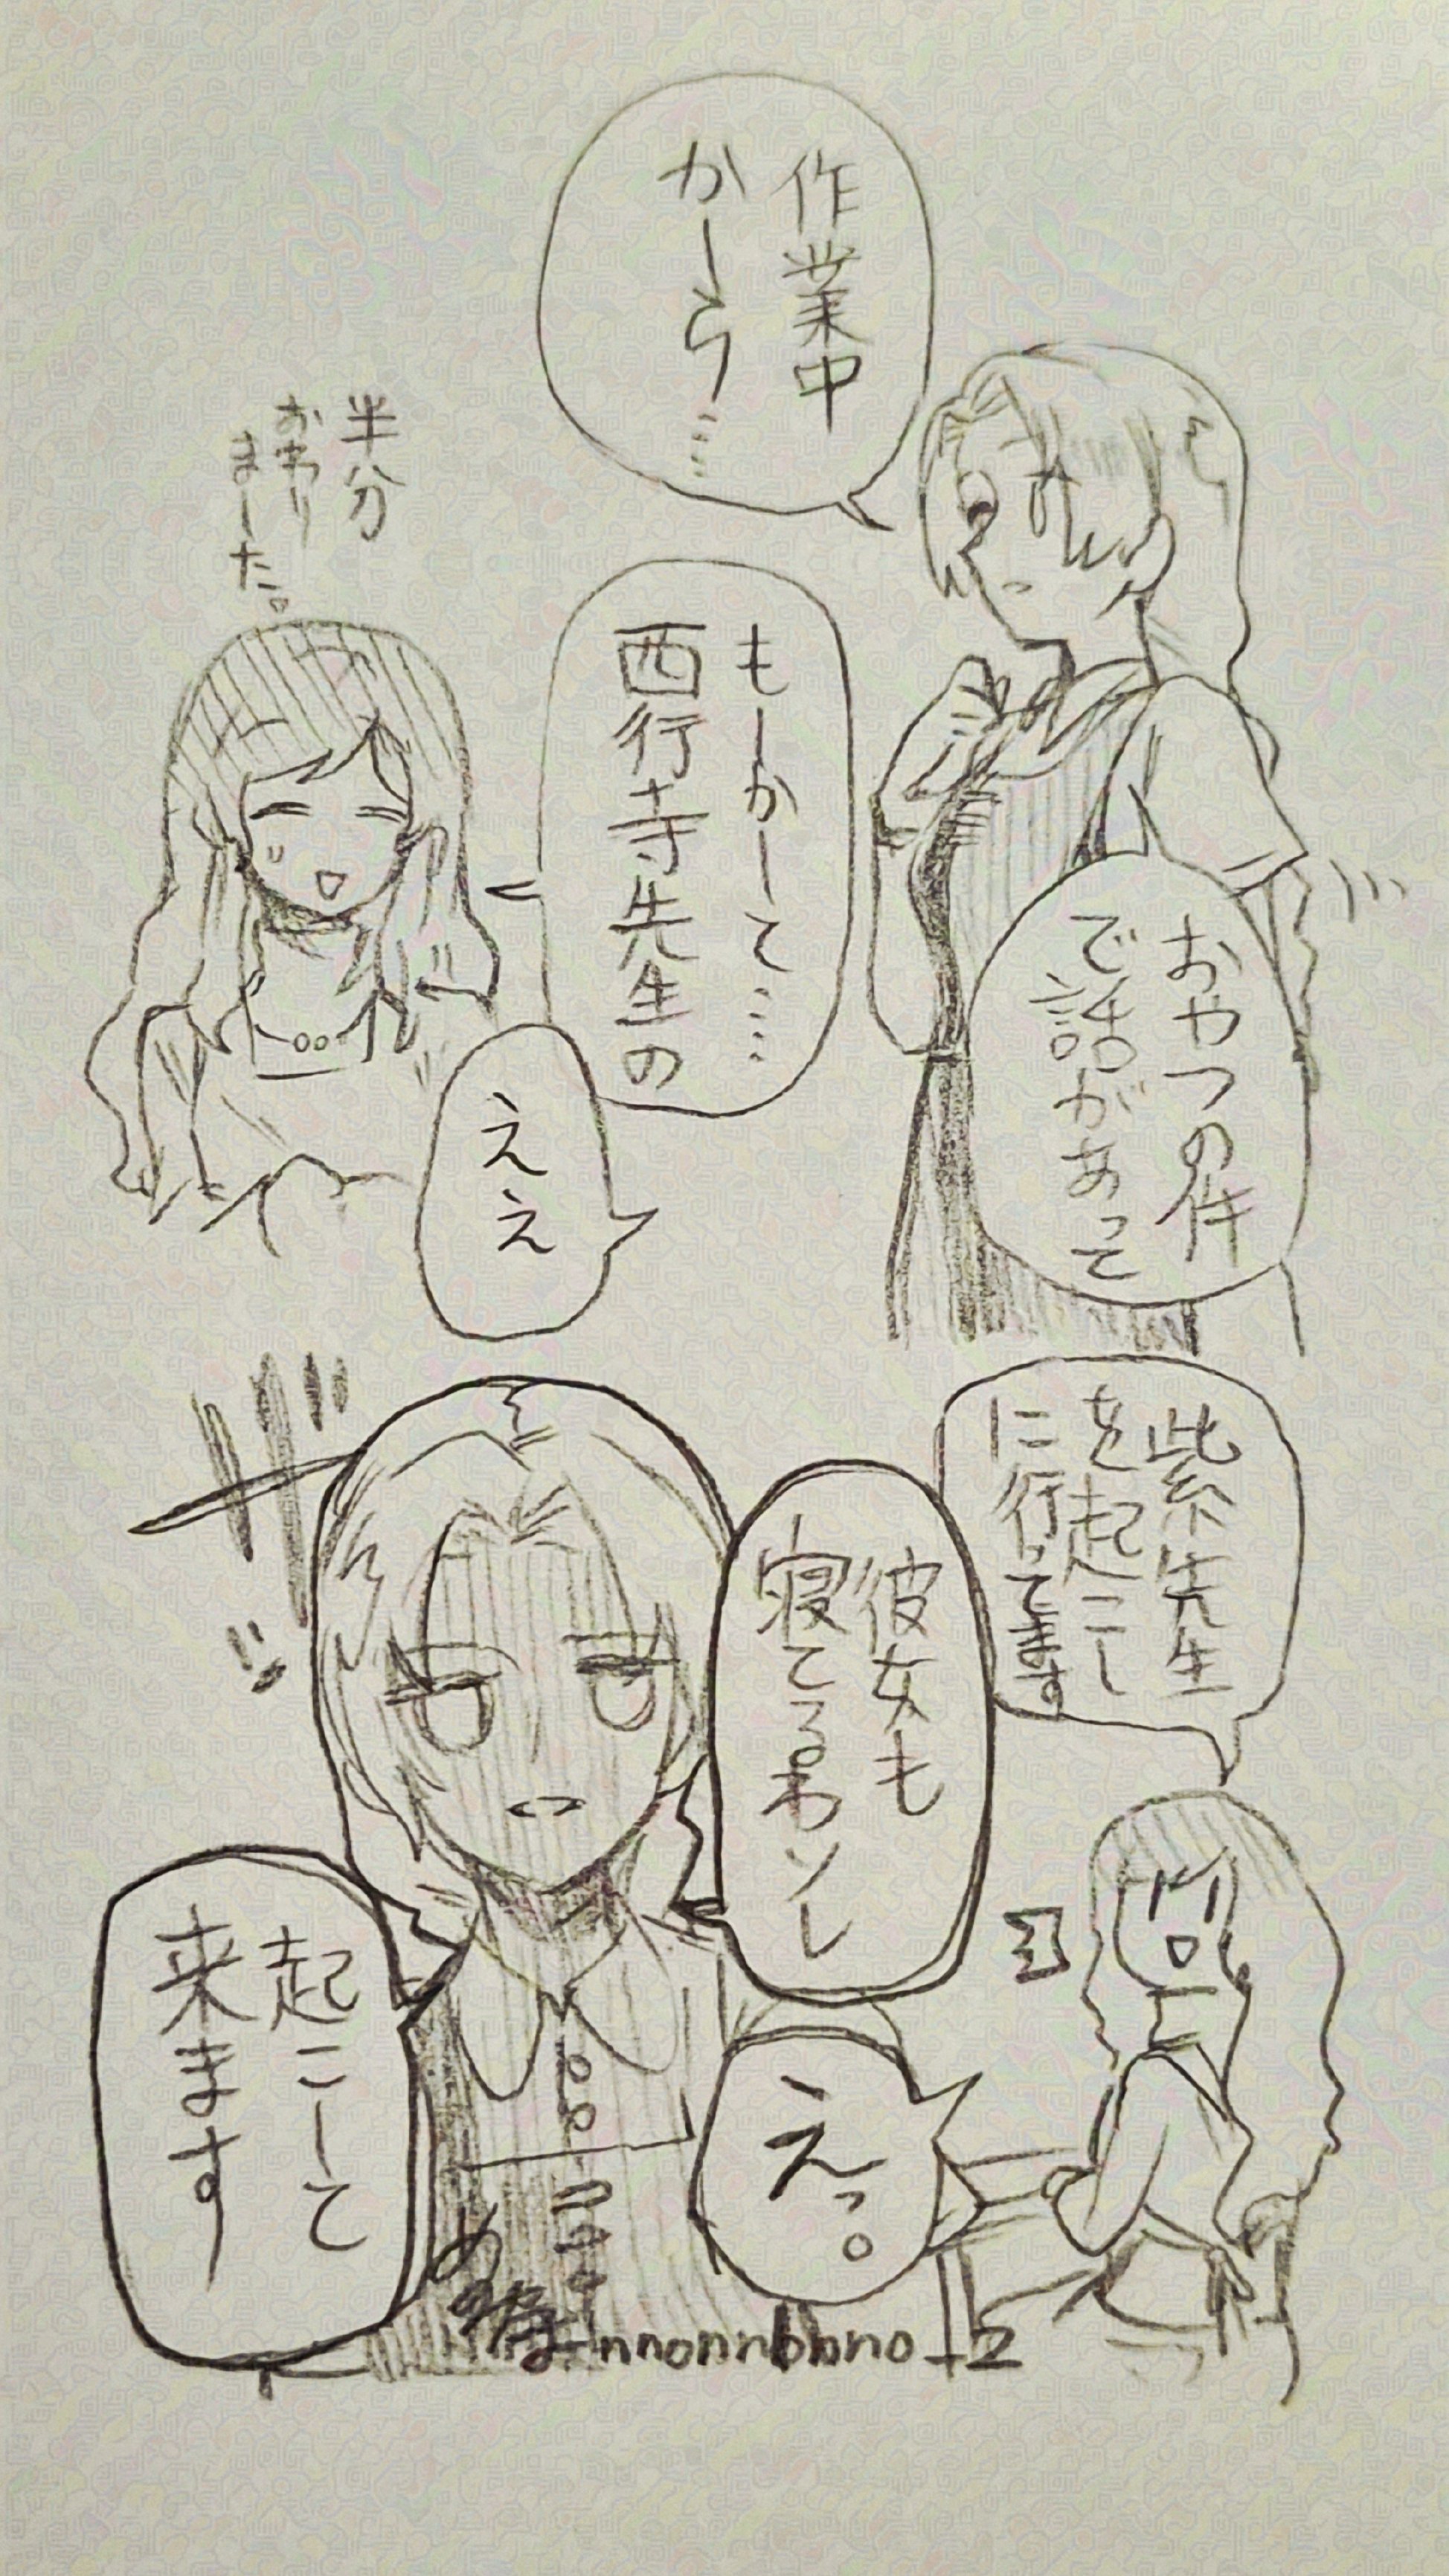 作業中
かしら……
半分
おわり
ました。
もしかして……
西行寺先生の
おやつの件
で話があって
ええ
紫先生
を起こし
に行ってます
彼女も
寝てるわソレ
えっ。
起こして
来ます
nnonnbnno_2